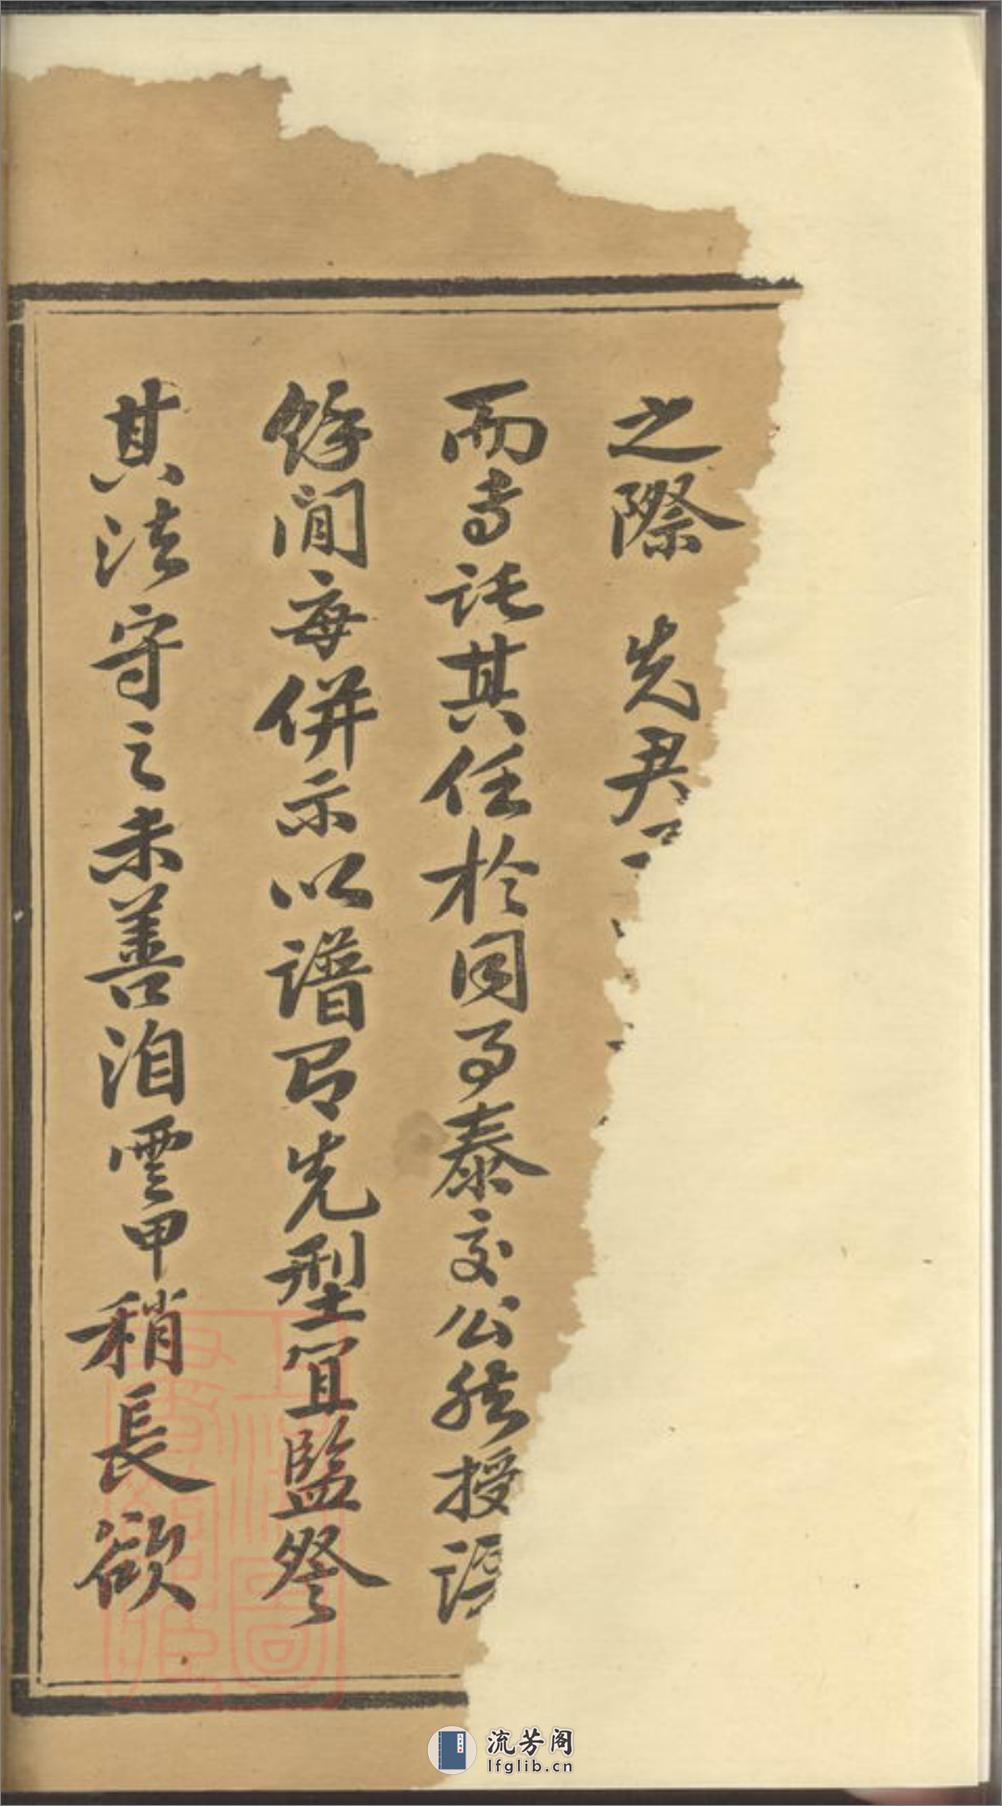 之際 先君
而專託其任於同事泰交公然授課
餘閒每併示以譜局先型宜監祭
其法守之未善洎雲甲稍長欲
流芳阁
lfglib.cn